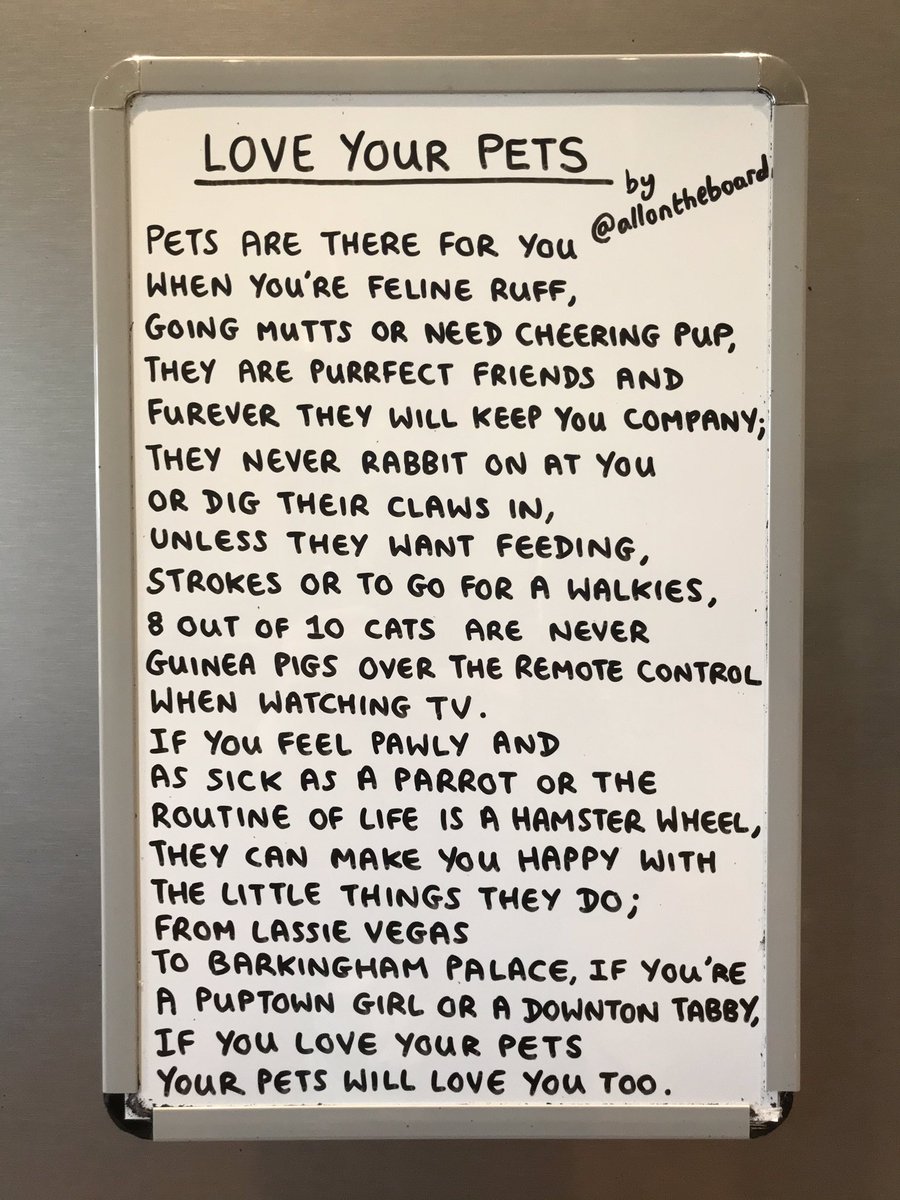 LOVE YOUR PETS
by
@allontheboard
PETS ARE THERE FOR YOU
WHEN YOU'RE FELINE RUFF,
GOING MUTTS OR NEED CHEERING PUP,
THEY ARE PURRFECT FRIENDS AND
FUREVER THEY WILL KEEP YOU COMPANY;
THEY NEVER RABBIT ON AT YOU
OR DIG THEIR CLAWS IN,
UNLESS THEY WANT FEEDING,
STROKES OR TO GO FOR A WALKIES,
8 OUT OF 10 CATS ARE NEVER
GUINEA PIGS OVER THE REMOTE CONTROL
WHEN WATCHING TV.
IF YOU FEEL PAWLY AND
AS SICK AS A PARROT OR THE
ROUTINE OF LIFE IS A HAMSTER WHEEL,
THEY CAN MAKE YOU HAPPY WITH
THE LITTLE THINGS THEY DO;
FROM LASSIE VEGAS
TO BARKINGHAM PALACE, IF YOU'RE
A PUPTOWN GIRL OR A DOWNTON TABBY,
IF YOU LOVE YOUR PETS
YOUR PETS WILL LOVE YOU TOO.